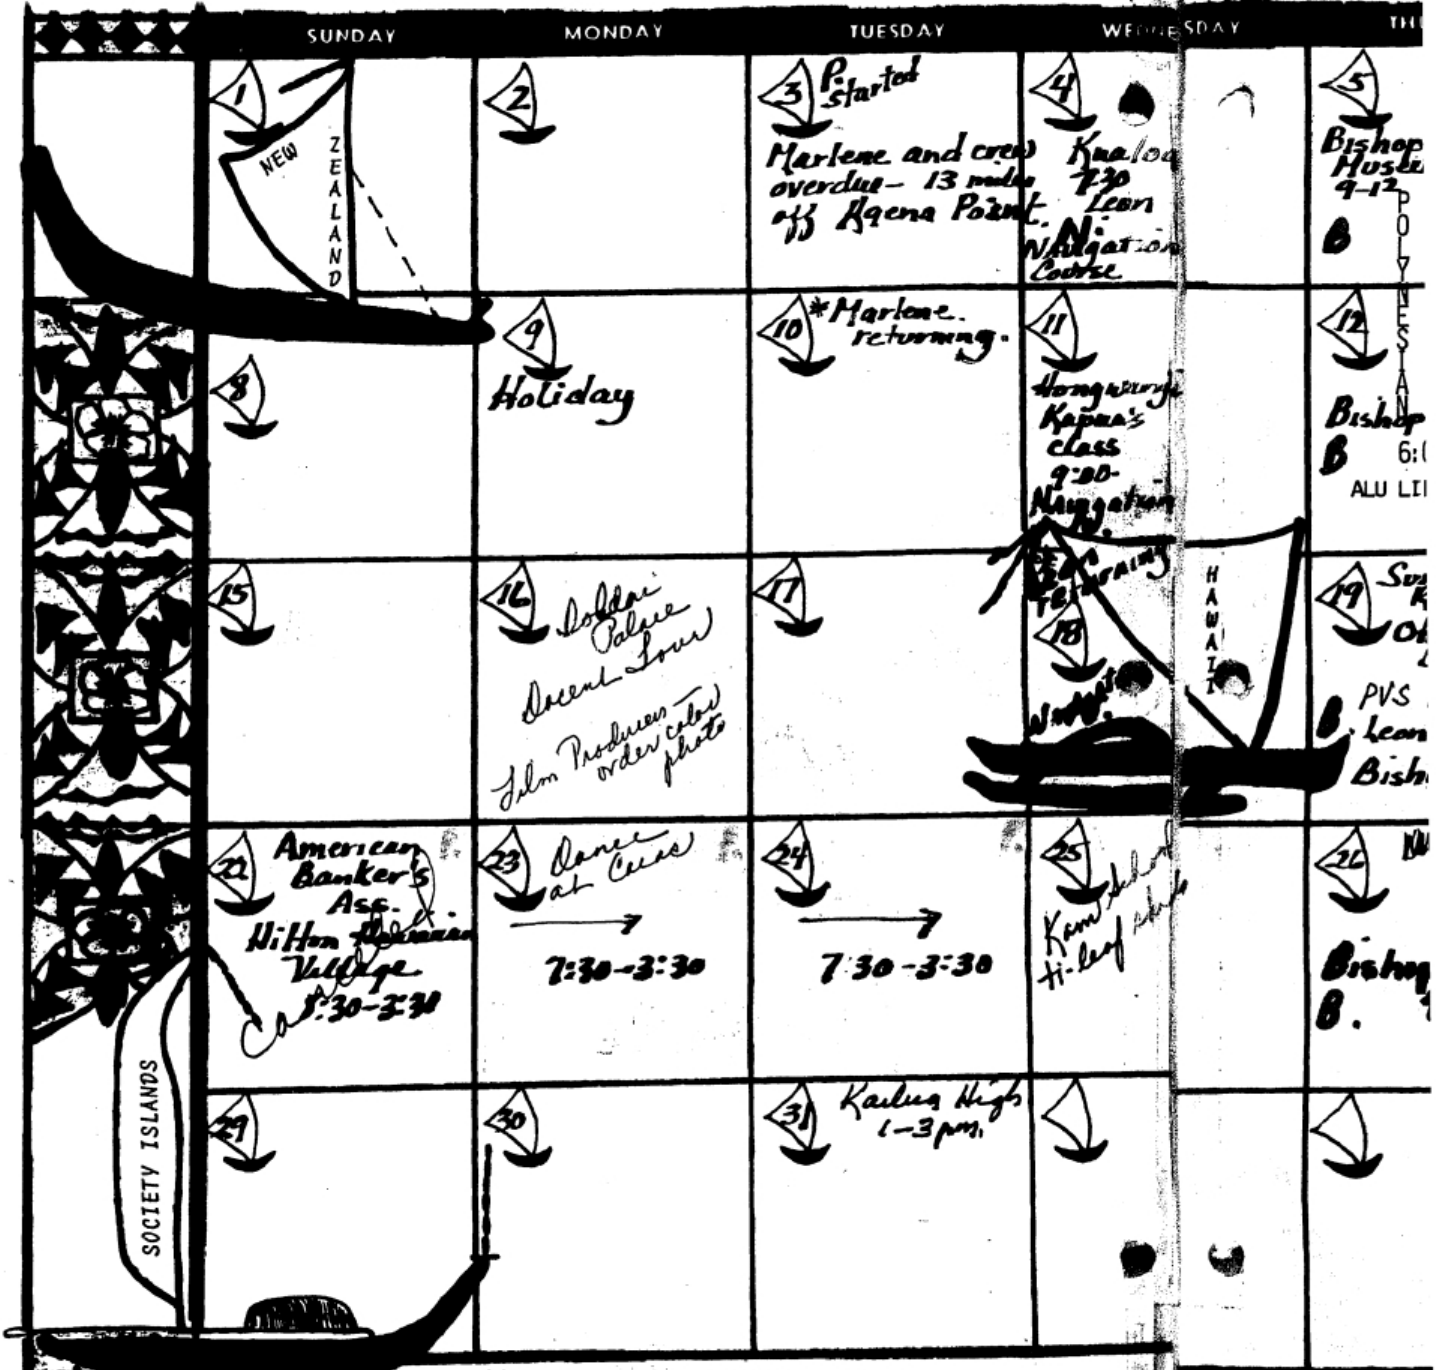 SUNDAY MONDAY TUESDAY WEDNESDAY TH
1
NEW
ZEALAND
2
3 P. started
Marlene and crew
overdue - 13 miles
off Kaena Point.
4
Kualoa
7:30
Leon
N:
Navigation
Course
5
Bishop
Museu
9-12
B
POLYNESIAN
8
9
Holiday
10 *Marlene
returning.
11
Hongwanji
Kapua's
class
9:00-
Navigation
N.
12
Bishop
B 6:
ALU LI
15
16
Palace
Docent Tour
Film Producers -
order color
photo
17
Returning
18
HAWAII
19
B. PVS
Leon
Bish
22 American
Banker's
Ass.
Hilton Hawaiian
Village
:30-3:30
23 Dance
at
7:30-3:30
24
7:30-3:30
25
Kam School
ti-leaf skirts
26
Bishop
B.
29
30
31 Kailua High
1-3 p.m.
SOCIETY ISLANDS